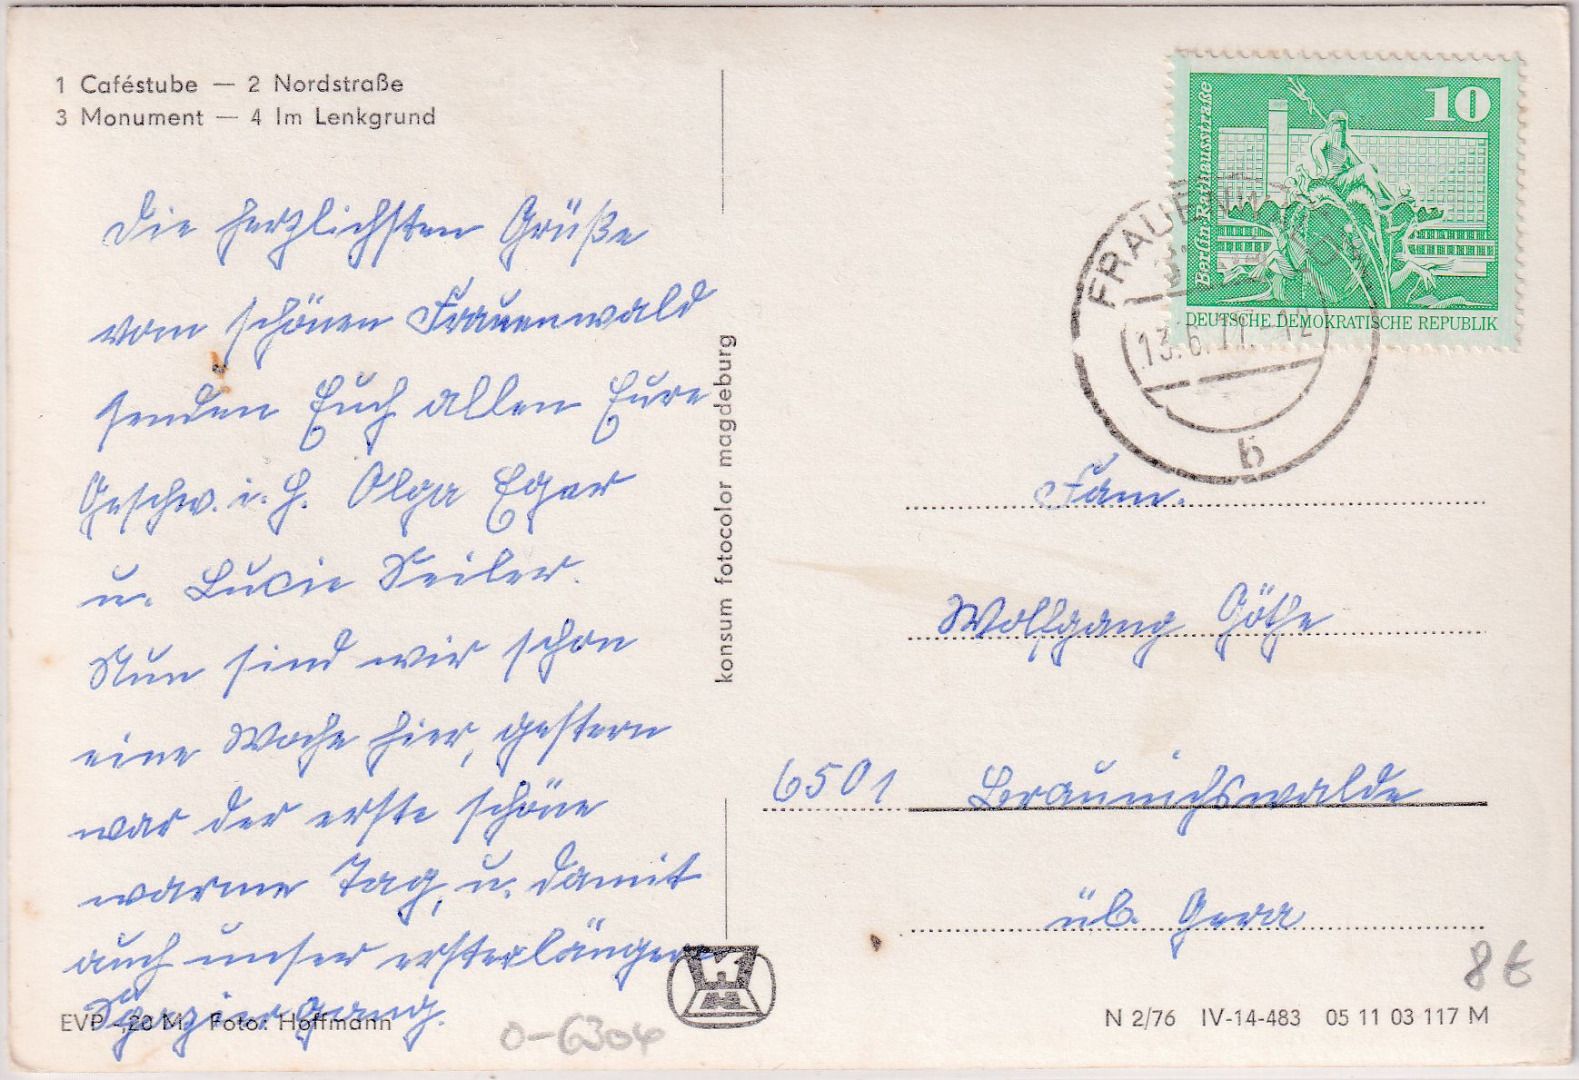 1 Caféstube — 2 Nordstraße
3 Monument — 4 Im Lenkgrund
Die herzlichsten Grüße
vom schönen Frauenwald
senden Euch allen Eure
Geschw. i. H. Olga Eger
u. Lucie Seiler.
Nun sind wir schon
eine Woche hier, gestern
war der erste schöne
warme Tag, u. damit
auch unser erster längerer
Spaziergang.
EVP -,20 M. Foto: Hoffmann
O-6304
konsum fotocolor magdeburg
10
Berlin: Rathausstraße
DEUTSCHE DEMOKRATISCHE REPUBLIK
13.6.77.-12
b
Fam.
Wolfgang Göthe
6501 Braunichswalde
üb. Gera
8 €
N 2/76 IV-14-483 05 11 03 117 M